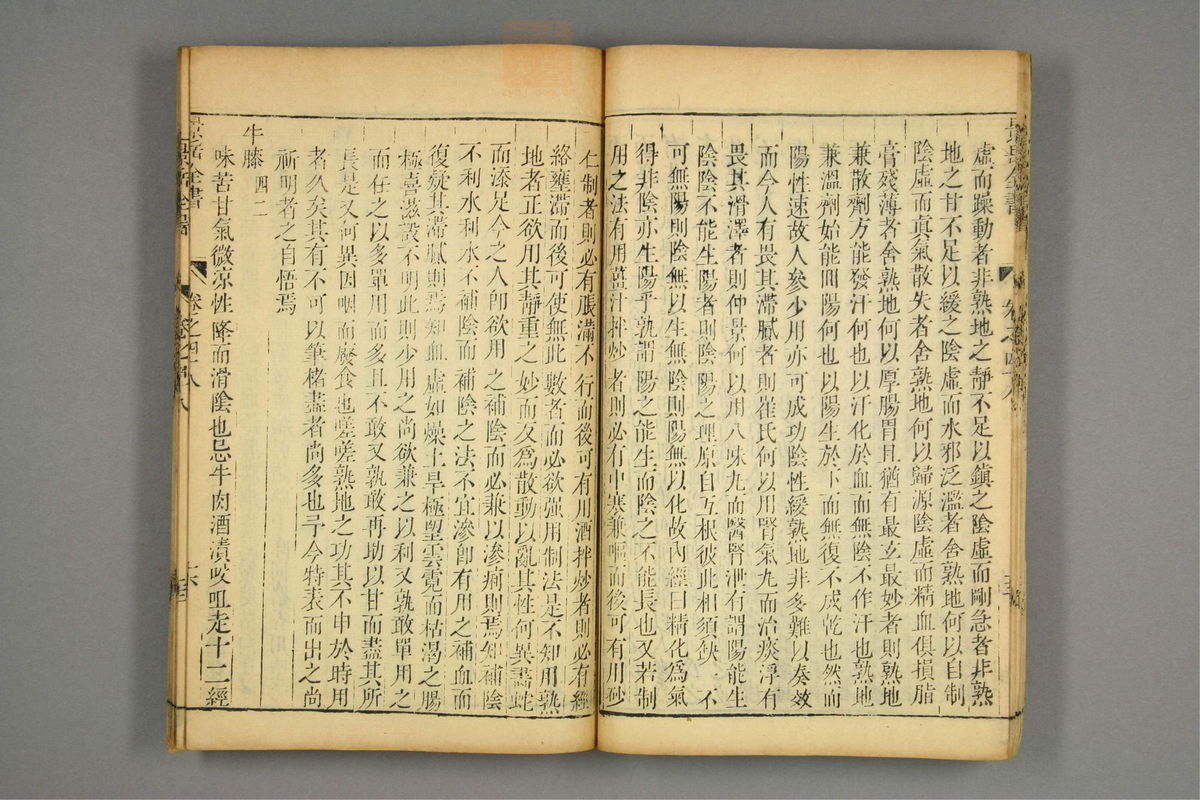 虛而躁動者非熟地之靜不足以鎮之陰虛而剛急者非熟
地之甘不足以緩之陰虛而水邪泛濫者舍熟地何以自制
陰虛而眞氣散失者舍熟地何以歸源陰虛而精血俱損脂
膏殘薄者舍熟地何以厚腸胃且猶有最玄最妙者則熟地
兼散劑方能發汗何也以汗化於血而無陰不作汗也熟地
兼溫劑始能回陽何也以陽生於下而無復不成乾也然而
陽性速故人參少用亦可成功陰性緩熟地非多難以奏效
而今人有畏其滯膩者則崔氏何以用腎氣丸而治痰浮有
畏其滑澤者則仲景何以用八味丸而醫腎泄有謂陽能生
陰陰不能生陽者則陰陽之理原自互根彼此相須缺一不
可無陽則陰無以生無陰則陽無以化故內經曰精化爲氣
得非陰亦生陽乎孰謂陽之能生而陰之不能長也又若制
用之法有用薑汁拌炒者則必有中寒兼嘔而後可有用砂
仁制者則必有脹滿不行而後可有用酒拌炒者則必有經
絡壅滯而後可使無此數者而必欲强用制法是不知用熟
地者正欲用其靜重之妙而反爲散動以亂其性何異畵蛇
而添足今之人卽欲用之補陰而必兼以滲痢則焉知補陰
不利水利水不補陰而補陰之法不宜滲卽有用之補血而
復疑其滯膩則焉知血虛如燥土旱極望雲霓而枯渴之腸
極喜滋設不明此則少用之尚欲兼之以利又孰敢單用之
而任之以多單用而多且不敢又孰敢再助以甘而盡其所
長是又何異因咽而廢食也嗟嗟熟地之功其不申於時用
者久矣其有不可以筆楮盡者尚多也予今特表而出之尚
祈明者之自悟焉
牛膝 四二
味苦甘氣微凉性降而滑陰也忌牛肉酒漬㕮咀走十二經
景岳全書
卷之四十八